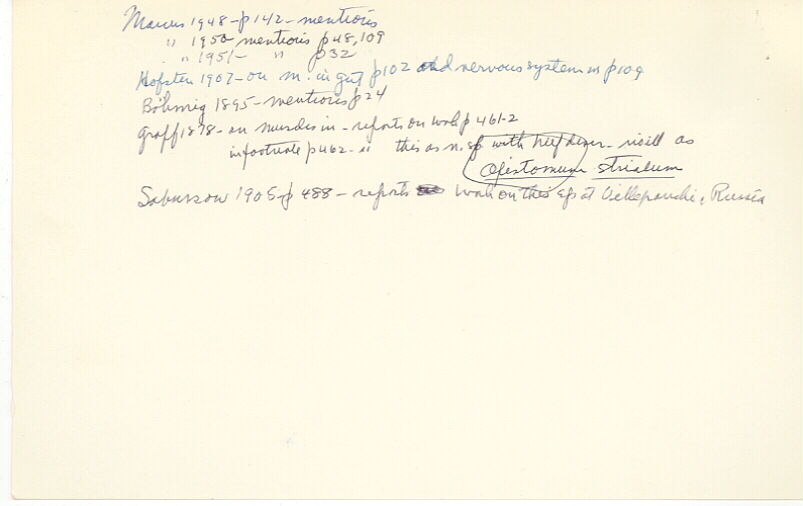 Marcus 1948 - p 142 - mentions
" 1950 mentions p 48, 109
" 1951 - " p 32
Hofsten 1907 - on m. in gut p 102 and nervous system on p 109
Böhmig 1895 - mentions p 24
Graff 1878 - en - reports on p 461-2
in footnote p 462 - this as n. sp with brief as
Opistomum striatum
Sabussow 1905 - p 488 - reports on this sp at Russia